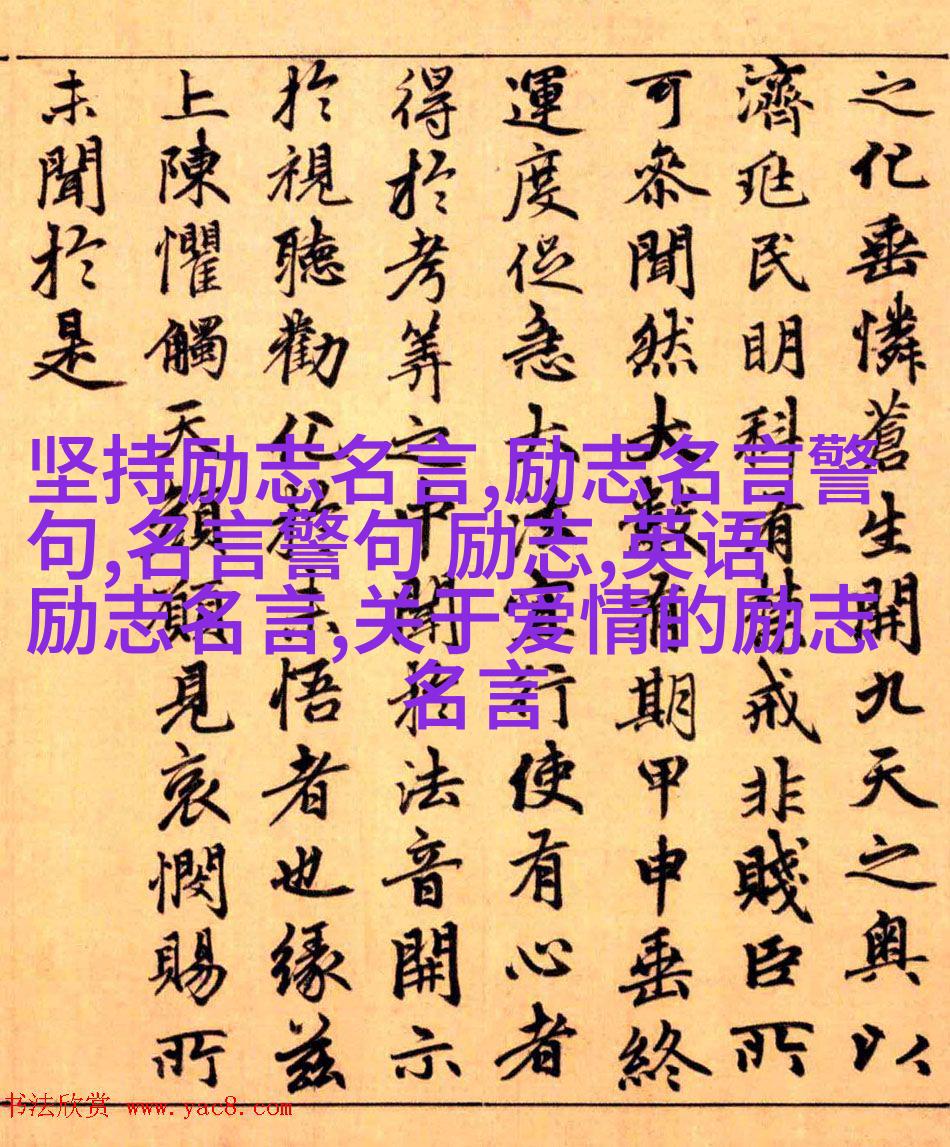 之化垂憐蒼生開九天之奥以
濟兆民明科有禁戒非賤臣所
可叅聞然大數有期甲申垂終
運度促急大法宜行使有心者
得於考筭之中法音開示
於視聽勸化未悟者也緣茲
上陳懼觸天顔願見哀憫賜所
未聞於是
坚持励志名言,励志名言警
句,名言警句 励志,英语
励志名言,关于爱情的励志
名言
书法欣赏 www.yac8.com